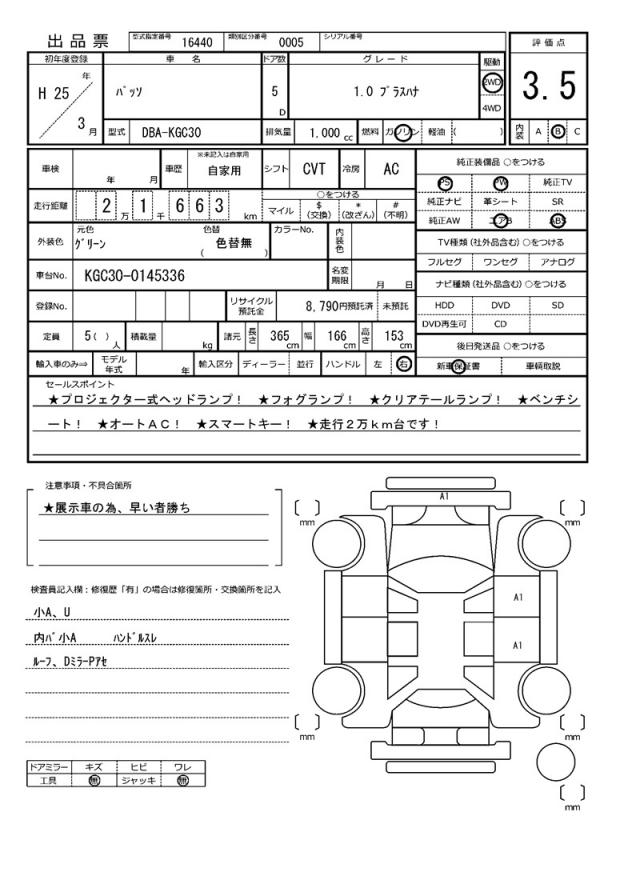 出品票 型式指定番号 16440 類別区分番号 0005 シリアル番号
初年度登録 車名 ドア数 グレード 駆動 評価点
H 25 年 ﾊﾟｯｿ 5 D 1.0 ﾌﾟﾗｽﾊﾅ 2WD 3.5
4WD
3 月 型式 DBA-KGC30 排気量 1,000 cc 燃料 ガソリン 軽油 ( ) 内装 A B C
車検 年 月 車歴 ※未記入は自家用 自家用 シフト CVT 冷房 AC 純正装備品 ○をつける
PS PW 純正TV
走行距離 2 万 1 千 6 6 3 km ○をつける 純正ナビ 革シート SR
マイル $ (交換) * (改ざん) # (不明) 純正AW エアB ABS
外装色 元色 グリーン 色替 色替無 ( ) カラーNo. 内装色 TV種類 (社外品含む) ○をつける
フルセグ ワンセグ アナログ
車台No. KGC30-0145336 名変期限 月 日 ナビ種類 (社外品含む) ○をつける
登録No. リサイクル預託金 8,790円預託済 未預託 HDD DVD SD
DVD再生可 CD
定員 5( ) 人 積載量 kg 諸元 長さ 365 cm 幅 166 cm 高さ 153 cm 後日発送品 ○をつける
輸入車のみ⇒ モデル年式 年 輸入区分 ディーラー 並行 ハンドル 左 右 新車保証書 車輌取説
セールスポイント
★プロジェクター式ヘッドランプ！ ★フォグランプ！ ★クリアテールランプ！ ★ベンチシ
ート！ ★オートＡＣ！ ★スマートキー！ ★走行２万ｋｍ台です！
注意事項・不具合箇所
★展示車の為、早い者勝ち
検査員記入欄：修復歴「有」の場合は修復箇所・交換箇所を記入
小A、U
内ﾊﾞ小A ﾊﾝﾄﾞﾙｽﾚ
ﾙｰﾌ、DﾐﾗｰPｱｾ
ドアミラー キズ ヒビ ワレ
工具 無 ジャッキ 無
A1
[ ] mm [ ] mm
A1
A1
[ ] mm [ ] mm
[ ] mm